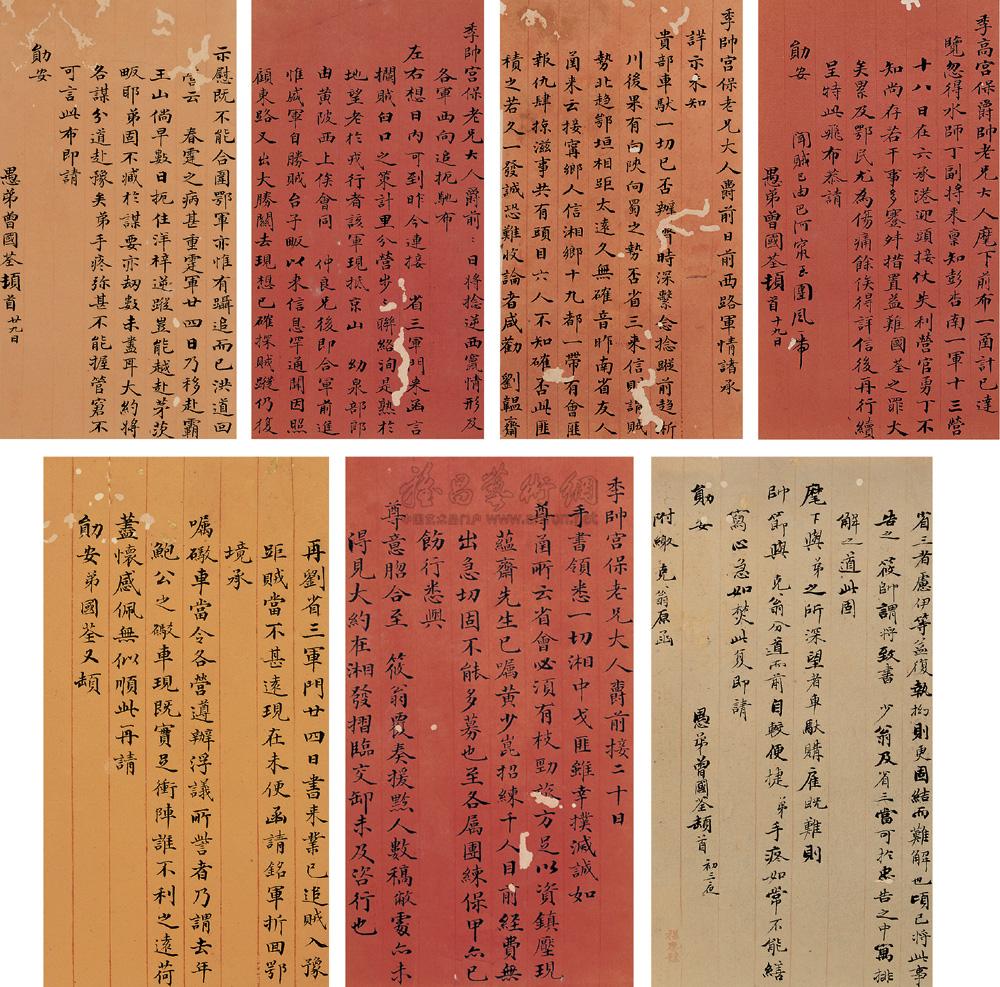 季高宮保爵帥老兄大人麾下前布一函計已達
覽忽得水師丁副將來稟知彭杏南一軍十三營
十八日在六承港迎頭接仗失利營官勇丁不
知尚存若干事多蹇舛措置益難國荃之罪大
矣累及鄂民尤為傷痛餘俟得詳信後再行續
呈特此飛布恭請
勛安 聞賊已由巴河竄至團風市
愚弟曾國荃頓首 十九日
季帥宮保老兄大人爵前日前西路軍情諸承
詳示永知
貴部車馱一切已否辦齊時深繫念捻蹤前趨淅
川後果有向陝向蜀之勢否省三來信則論賊
勢北趨鄂垣相距太遠久無確音昨南省友人
函來云接寧鄉人信湘鄉十九都一帶有會匪
報仇肆掠滋事共有頭目六人不知確否此匪
積之若久一發誠恐難收論者咸勸劉韞齋
季帥宮保老兄大人爵前日將捻逆西竄情形及
各軍西向追扼馳布
左右想日內可到昨今連接省三軍門來函言
擱賊臼口之策計里分營步步聯絡洵是熟於
地望老於戎行者該軍現抵京山幼泉部郎
由黃陂西上俟會同仲良兄後即合軍前進
惟盛軍自勝賊台子畈以來信息罕通聞因照
顧東路又出大勝關去現想已確探賊蹤仍復
示慰既不能合圍鄂軍亦惟有躡追而已洪道回
營云春霆之病甚重霆軍廿四日乃移赴霸
王山倘早數日扼住洋梓逆蹤豈能越赴茅茨
畈耶弟固不臧於謀要亦劫數未盡耳大約將
各謀分道赴豫矣弟手疼殊甚不能握管窘不
可言此布即請
勛安
愚弟曾國荃頓首 廿九日
省三者慮伊等益復執拗則更固結而難解也頃已將此事
告之筱帥謂將致書少翁及省三當可於忠告之中寓排
解之道此固
麾下與弟之所深望者車馱購雇既難則
帥節與克翁分道而前自較便捷弟手疼如常不能繕
寫心急如焚此復即請
勛安
愚弟曾國荃頓首 初三夜
附繳克翁原函
季帥宮保老兄大人爵前接二十日
手書領悉一切湘中戈匪雖幸撲滅誠如
尊函所云省會必須有枝勁旅方足以資鎮壓現
蘊齋先生已囑黃少崑招練千人目前經費無
出急切固不能多募也至各屬團練保甲亦已
飭行悉與
尊意脗合至筱翁覆奏援黔人數稿敝處亦未
得見大約在湘發摺臨交卸未及咨行也
再劉省三軍門廿四日書來業已追賊入豫
距賊當不甚遠現在未便函請銘軍折回鄂
境承
囑礮車當令各營遵辦浮議所訾者乃謂去年
鮑公之礮車現既實足衝陣誰不利之遠荷
蓋懷感佩無似順此再請
勛安弟國荃又頓